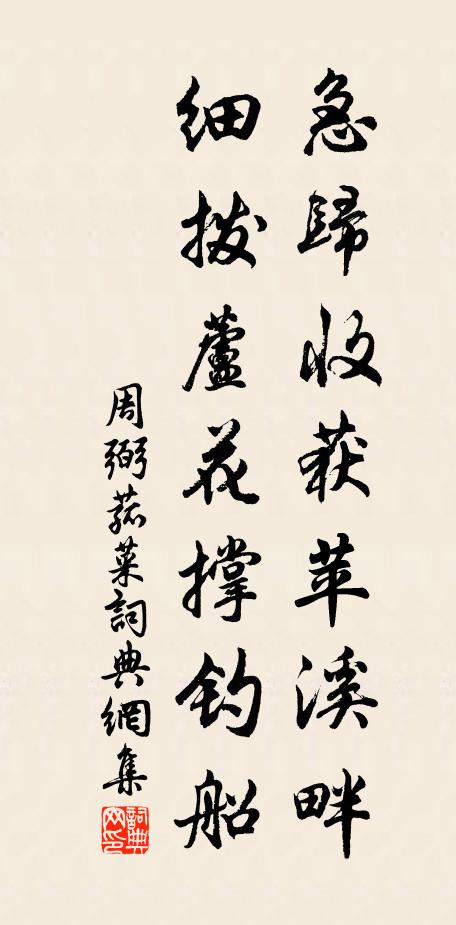 急歸收获苹溪畔
细拨蘆花撑钓船
周弼菰菜詞典網集
詞典网印